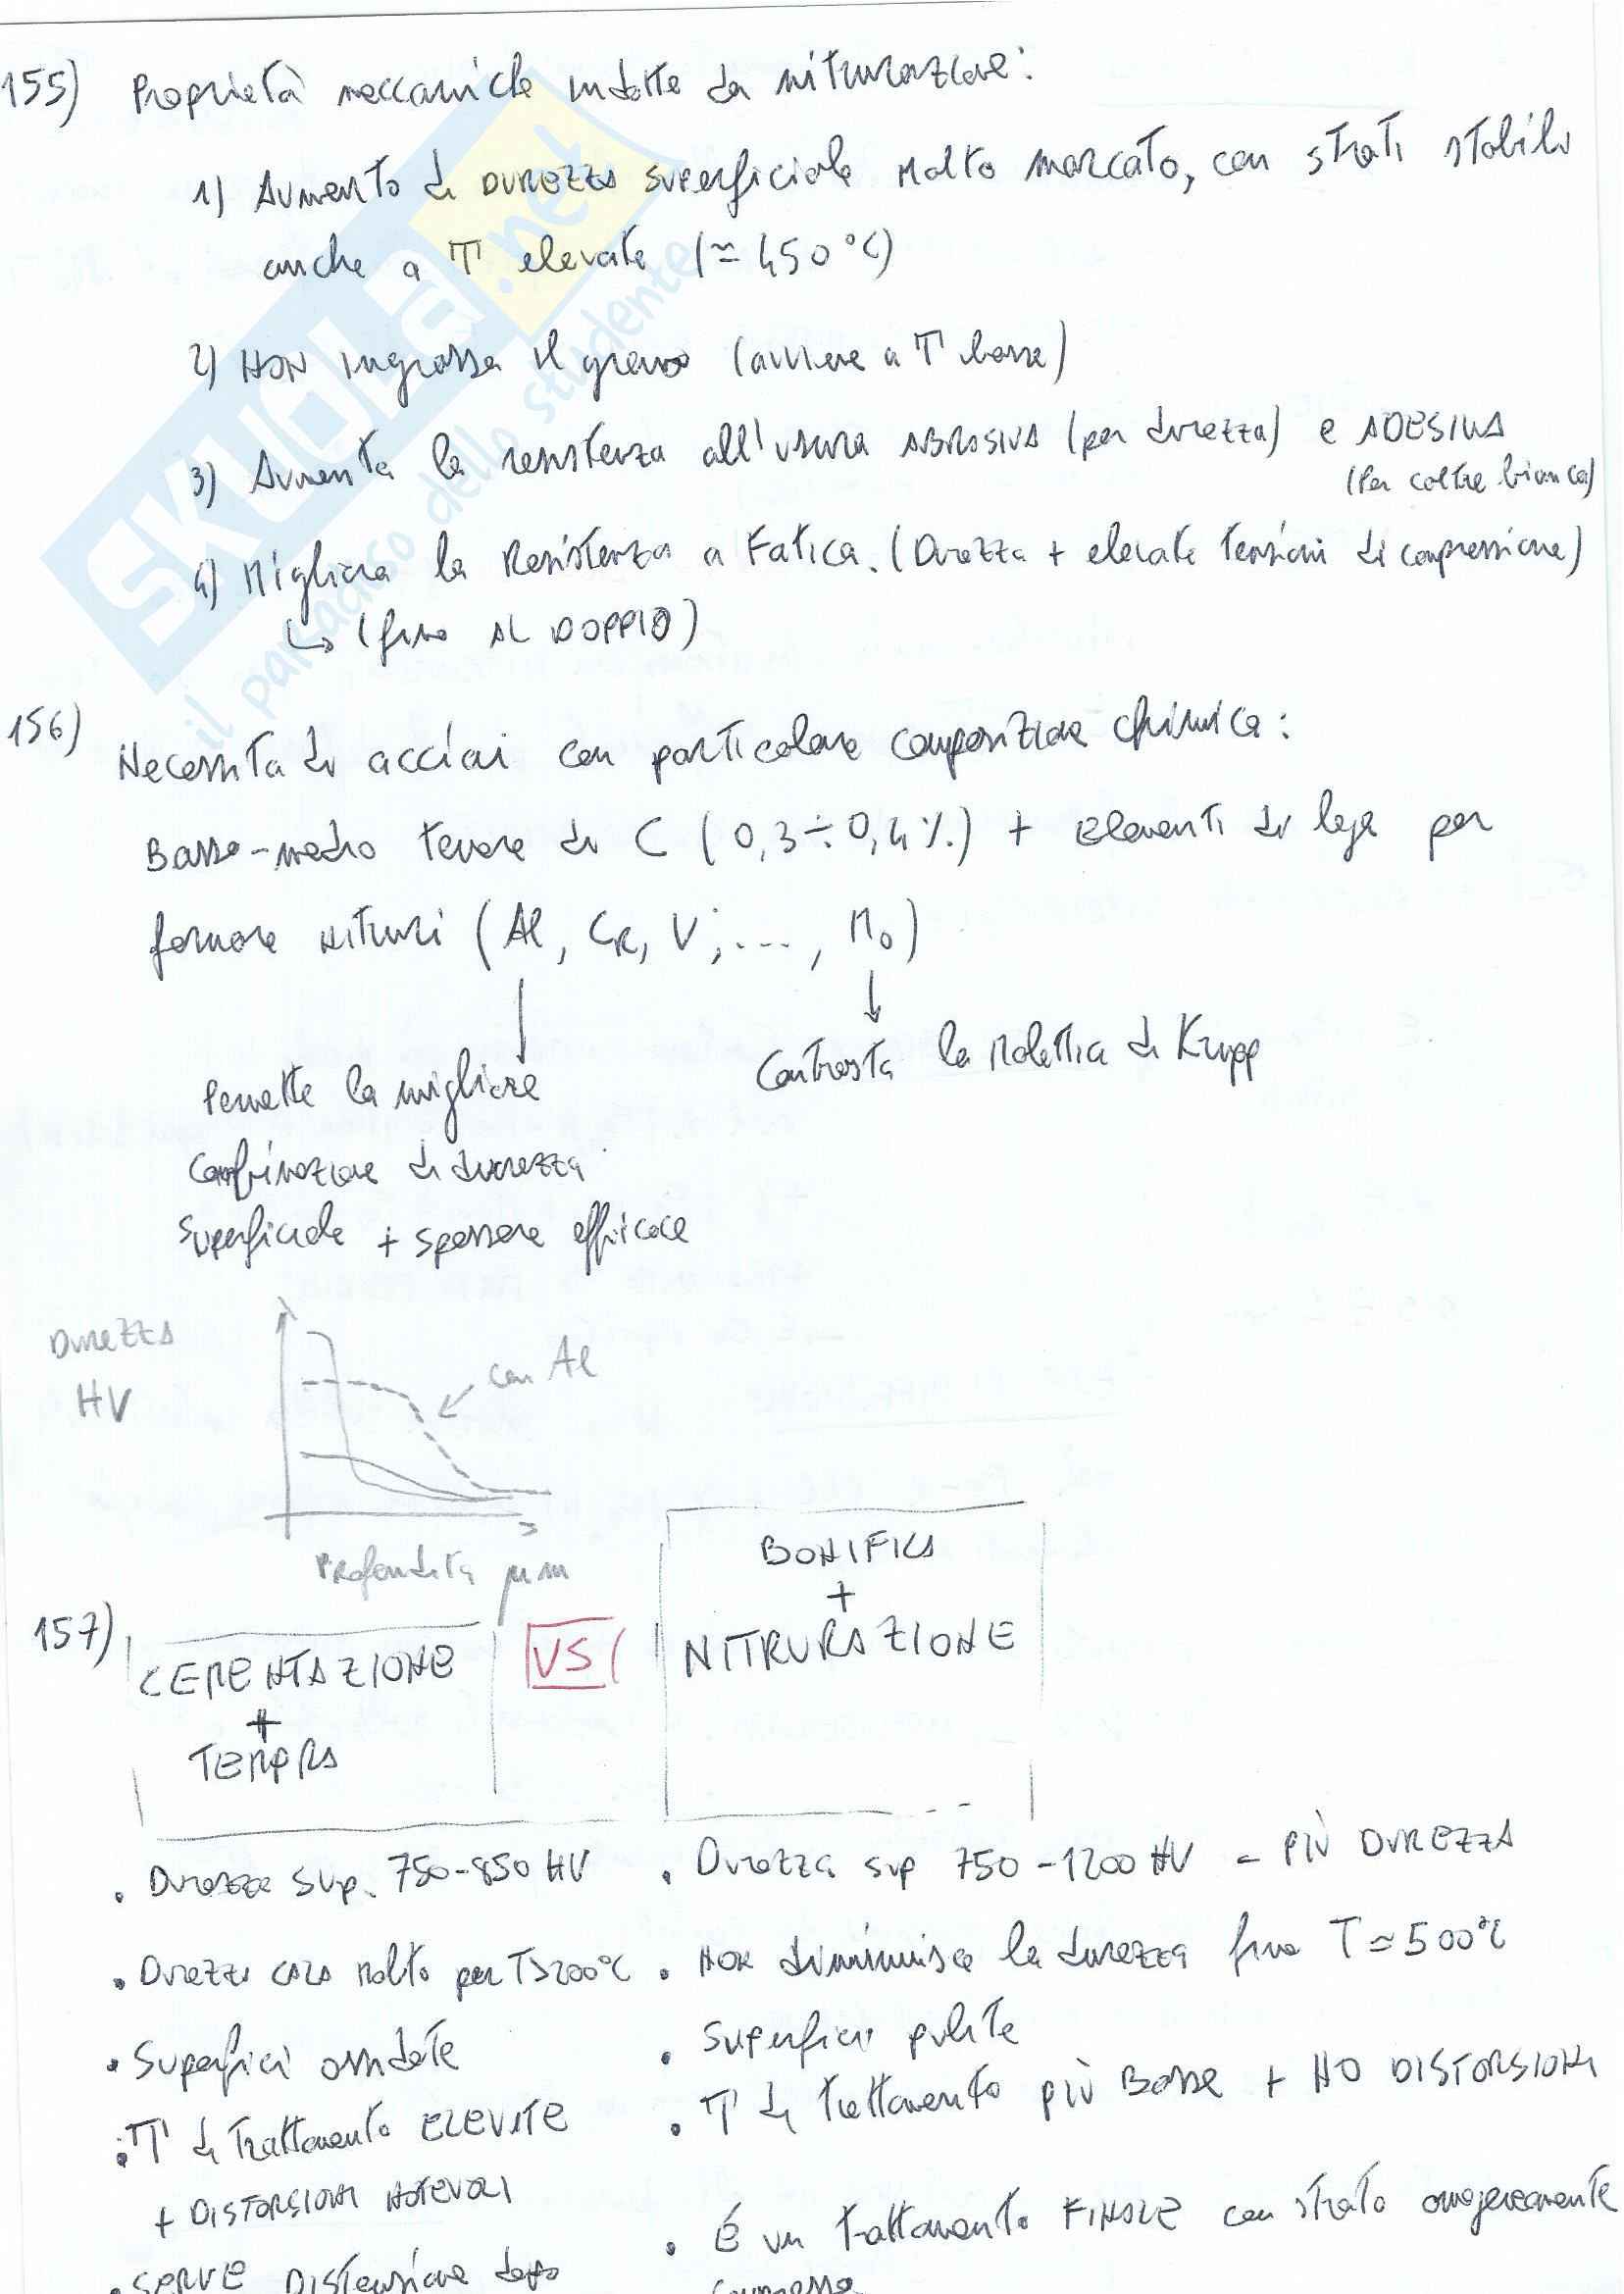 155) Proprietà meccaniche indotte da nitrurazione:
1) Aumento di DUREZZA superficiale molto marcato, con strati stabili
anche a T elevate (≃ 450°C)
2) NON ingrossa il grano (avviene a T basse)
3) Aumenta la resistenza all'usura ABRASIVA (per durezza) e ADESIVA
(per coltre bianca)
4) Migliora la Resistenza a Fatica. (Durezza + elevate tensioni di compressione)
↳ (fino AL DOPPIO)
156) Necessità di acciai con particolare composizione chimica:
Basso-medio tenore di C (0,3÷0,4%) + Elementi di lega per
formare nitruri (Al, Cr, V, ..., Mo)
Permette la migliore
combinazione di durezza
superficiale + spessore efficace
Contrasta la Malattia di Krupp
Durezza
HV
con Al
Profondità μm
157) CEMENTAZIONE
+
TEMPRA
VS
BONIFICA
+
NITRURAZIONE
• Durezza sup. 750-850 HV
• Durezza CALA molto per T>200°C
• Superfici ossidate
• T di trattamento ELEVATE
+ DISTORSIONI NOTEVOLI
• SERVE Distensione dopo
• Durezza sup 750-1200 HV - PIÙ DUREZZA
• NON diminuisce la durezza fino T≃500°C
• Superfici pulite
• T di trattamento più Basse + NO DISTORSIONI
• È un trattamento FINALE con strato omogeneamente
compresso
SKUOLA.net
il paradiso dello studente